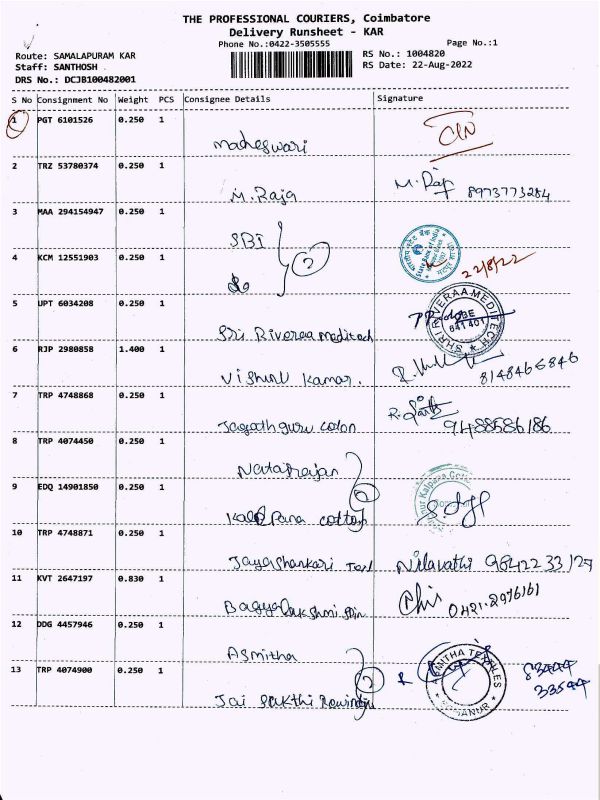 THE PROFESSIONAL COURIERS, Coimbatore
Delivery Runsheet - KAR
Phone No.:0422-3505555
Page No.:1
Route: SAMALAPURAM KAR
RS No.: 1004820
Staff: SANTHOSH
RS Date: 22-Aug-2022
DRS No.: DCJB100482001
S No Consignment No Weight PCS Consignee Details Signature
1 PGT 6101526 0.250 1
Maheswari
2 TRZ 53780374 0.250 1
M. Raja M. Raja 8973773284
3 MAA 294154947 0.250 1
SBI
4 KCM 12551903 0.250 1
2 State Bank of India 22/8/22
5 UPT 6034208 0.250 1
Sri Riveraa Meditech SHRI RIVERAA MEDITECH CBE 641401
6 RJP 2980858 1.400 1
Vishnu Kumar. 8148466846
7 TRP 4748868 0.250 1
Jagathguru cotton 9488586186
8 TRP 4074450 0.250 1
Natarajan
9 EDQ 14901850 0.250 1
Kalpana cottosp
10 TRP 4748871 0.250 1
Jayashankari Tex Nilavathi 98422 33127
11 KVT 2647197 0.830 1
Bagyalakshmi Spin 0421-2976161
12 DDG 4457946 0.250 1
Asmitha
13 TRP 4074900 0.250 1
2 ASMITHA TEXTILES 83444 33544
Jai Sakthi